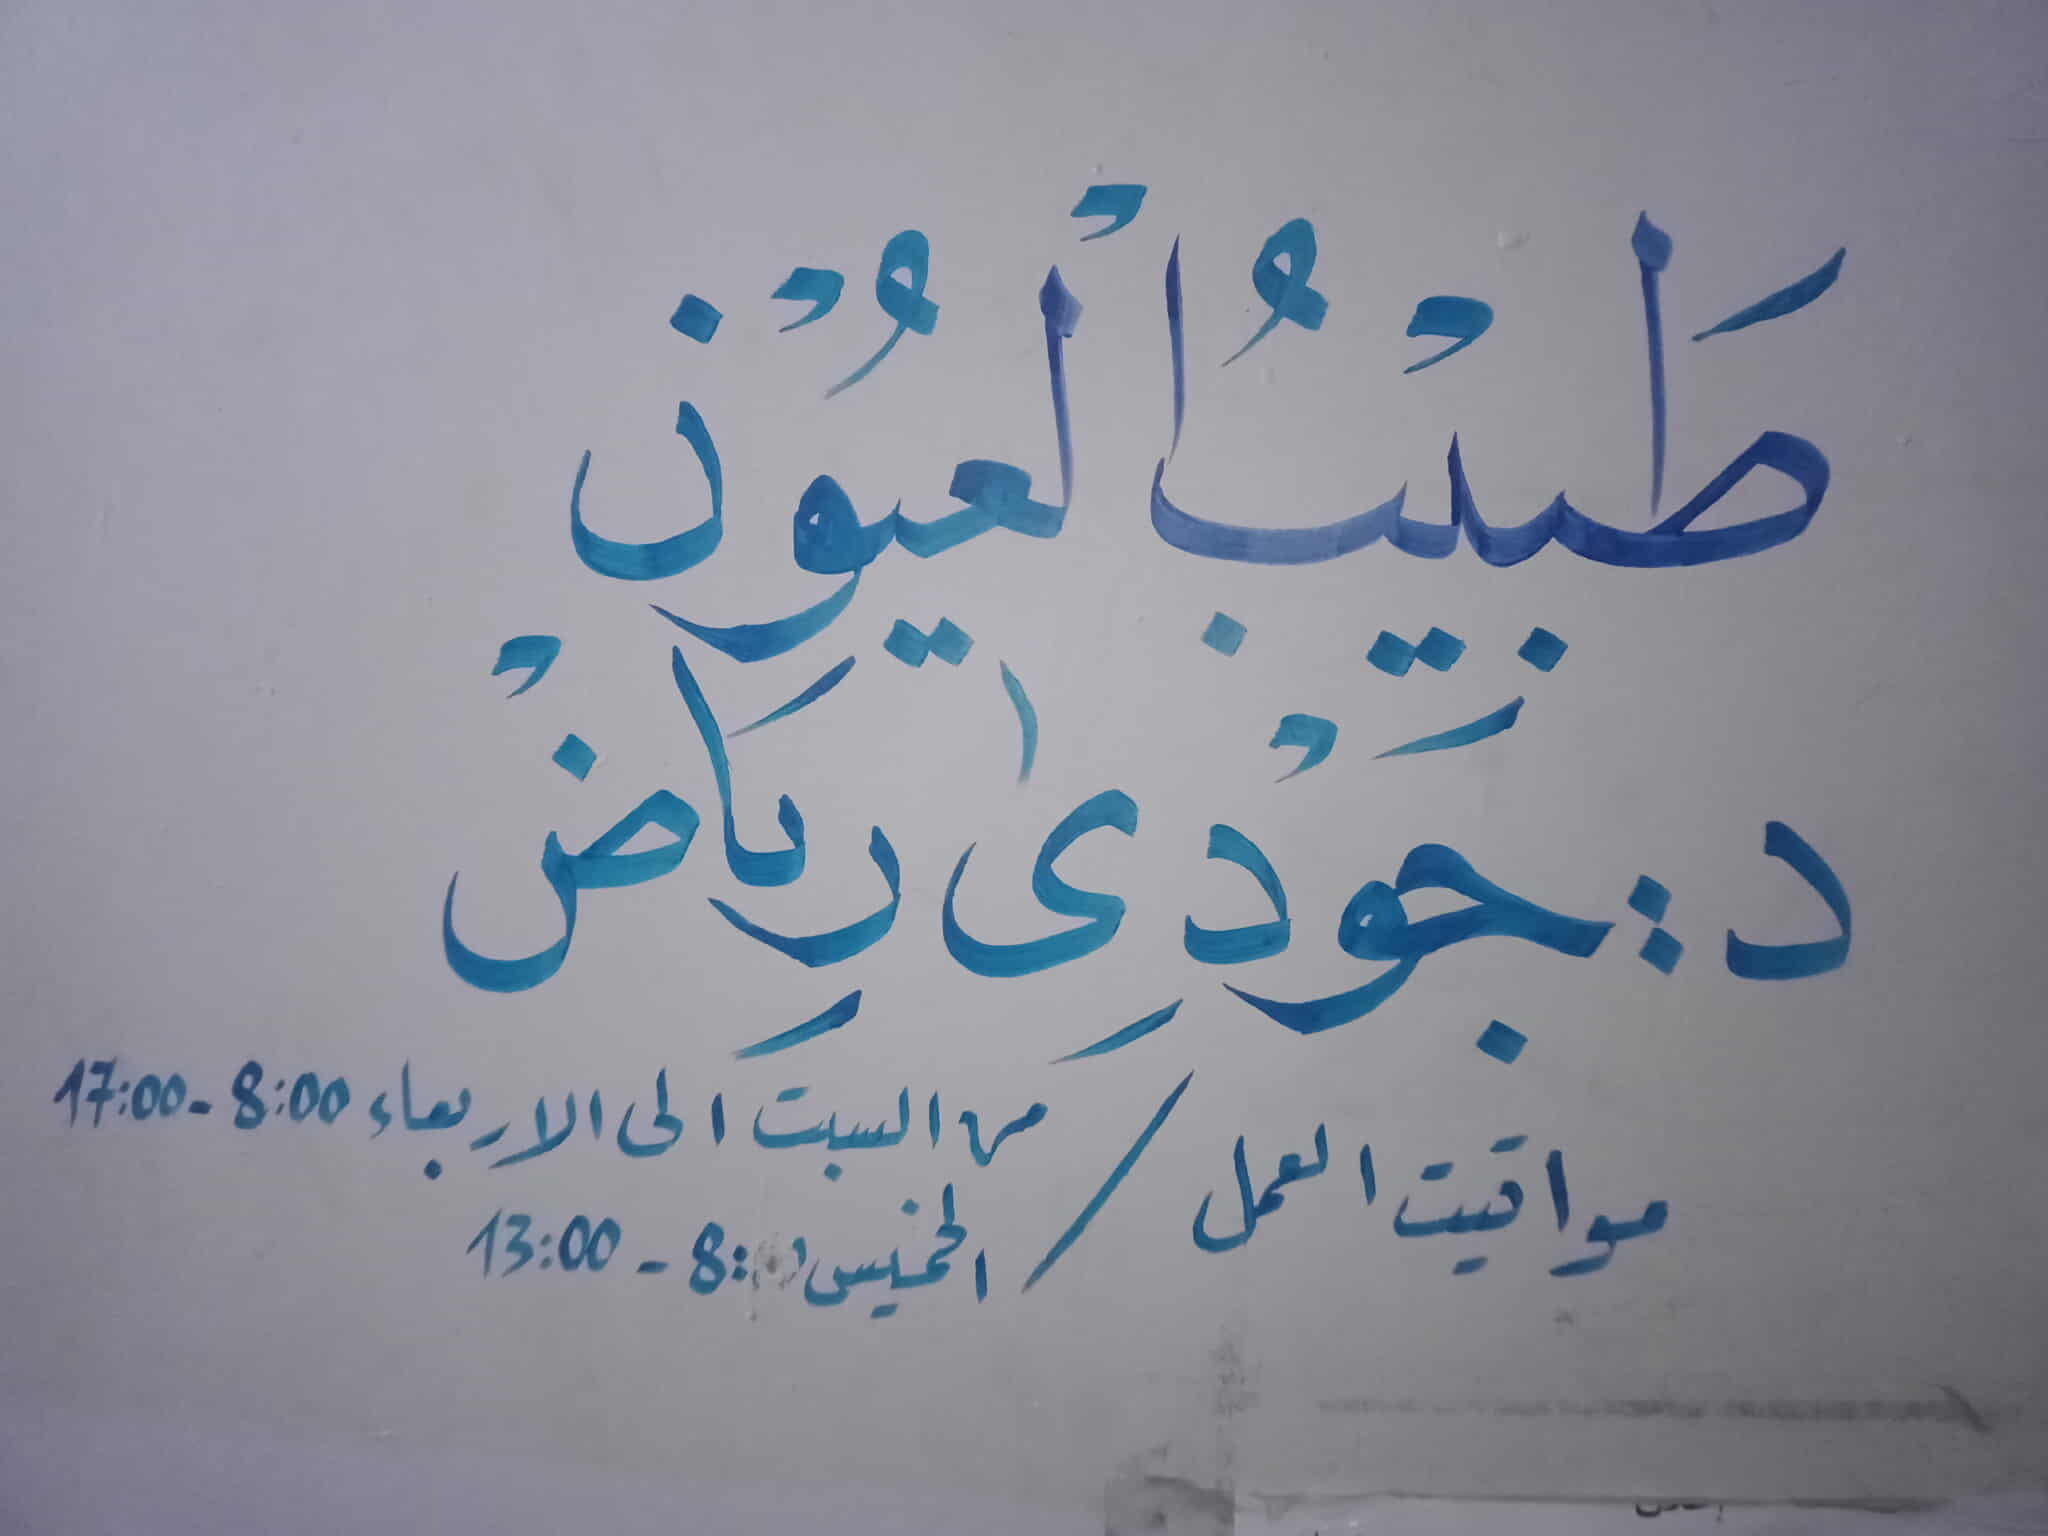 طَبيْبُ الْعيُوْن
د: جَوْدِي رِيَاضْ
مواقيت العمل / من السبت الى الاربعاء 8:00 - 17:00
الخميس 8:00 - 13:00